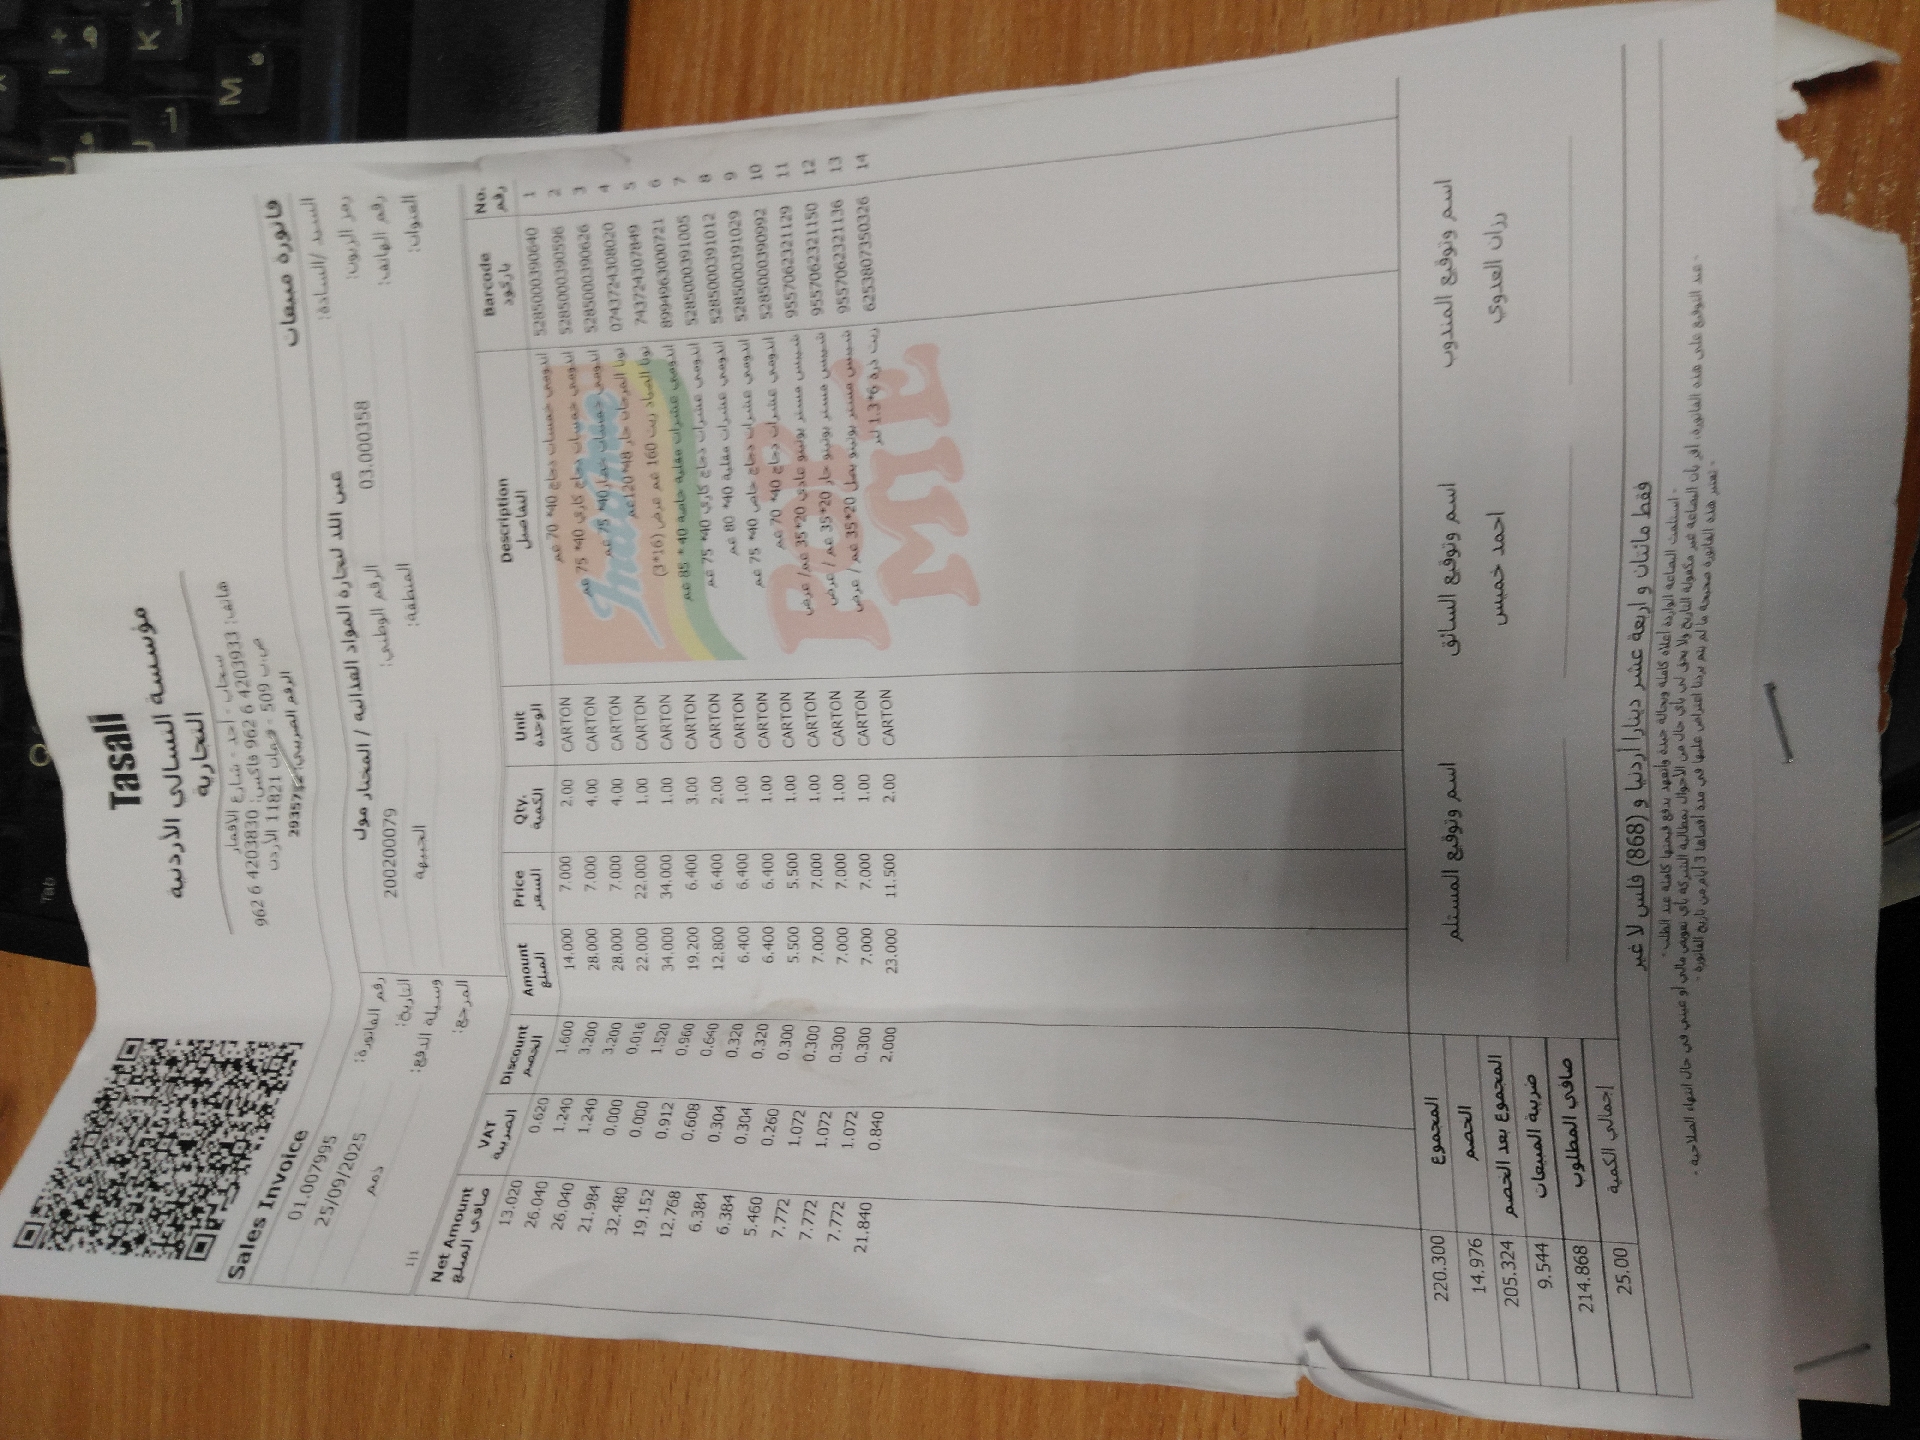 Tasali
مؤسسة التسالي الأردنية
التجارية
سحاب - احد - شارع الاقمار
هاتف: 4203933 6 962 فاكس: 4203830 6 962
ص.ب 509 - عمان 11821 الأردن
فاتورة مبيعات
Sales Invoice
السيد /السادة: غيث الله لتجارة المواد الغذائية / المختار مول
رقم الفاتورة: 01.007995
رمز الزبون: 03.000358
الرقم الوطني: 200200079
التاريخ: 25/09/2025
رقم الهاتف:
المنطقة: الجبيهة
وسيلة الدفع: ذمم
العنوان:
المرجع:
No. Barcode Description Unit Qty. Price Amount Discount VAT Net Amount
رقم باركود التفاصيل الوحدة الكمية السعر المبلغ الخصم الضريبة صافي المبلغ
1 5285000390640 اندومي خمسات دجاج 40* 70 غم CARTON 2.00 7.000 14.000 1.600 0.620 13.020
2 5285000390596 اندومي خمسات دجاج كاري 40* 75 غم CARTON 4.00 7.000 28.000 3.200 1.240 26.040
3 5285000390626 اندومي خمسات خضار 40* 75 غم CARTON 4.00 7.000 28.000 3.200 1.240 26.040
4 0743724308020 تونا المرجان حار 48* 120غم CARTON 1.00 22.000 22.000 0.016 0.000 21.984
5 743724307849 تونا الصياد زيت 160 غم عرض (16*3) CARTON 1.00 34.000 34.000 1.520 0.000 32.480
6 8994963000721 اندومي عشرات مقلية خاصة 40* 85 غم CARTON 3.00 6.400 19.200 0.960 0.912 19.152
7 5285000391005 اندومي عشرات دجاج كاري 40* 75 غم CARTON 2.00 6.400 12.800 0.640 0.608 12.768
8 5285000391012 اندومي عشرات مقلية 40* 80 غم CARTON 1.00 6.400 6.400 0.320 0.304 6.384
9 5285000391029 اندومي عشرات دجاج خاص 40* 75 غم CARTON 1.00 6.400 6.400 0.320 0.304 6.384
10 5285000390992 اندومي عشرات دجاج 40* 70 غم CARTON 1.00 5.500 5.500 0.300 0.260 5.460
11 9557062321129 شيبس مستر بوتيتو عادي 20*35 غم/ عرض CARTON 1.00 7.000 7.000 0.300 1.072 7.772
12 9557062321150 شيبس مستر بوتيتو حار 20*35 غم / عرض CARTON 1.00 7.000 7.000 0.300 1.072 7.772
13 9557062321136 شيبس مستر بوتيتو بصل 20*35 غم / عرض CARTON 1.00 7.000 7.000 0.300 1.072 7.772
14 6253807350326 زيت ذرة 6*1.3 لتر CARTON 2.00 11.500 23.000 2.000 0.840 21.840
Indomie
POP
MIE
اسم وتوقيع المندوب
رزان العدوي
اسم وتوقيع السائق
احمد خميس
اسم وتوقيع المستلم
المجموع 220.300
الخصم 14.976
المجموع بعد الخصم 205.324
ضريبة المبيعات 9.544
صافي المطلوب 214.868
إجمالي الكمية 25.00
فقط مائتان و اربعة عشر ديناراً أردنيا و (868) فلس لا غير